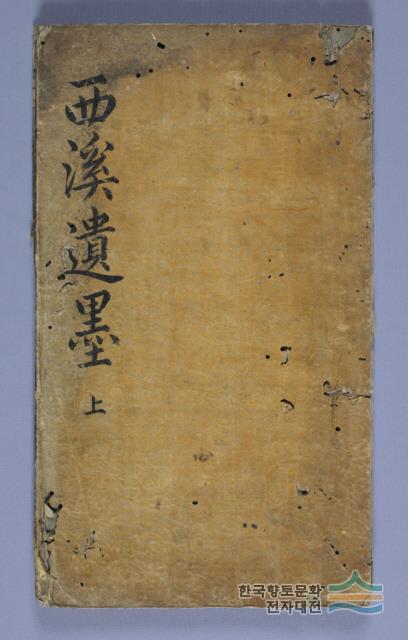 西溪遺墨
上
한국향토문화
전자대전